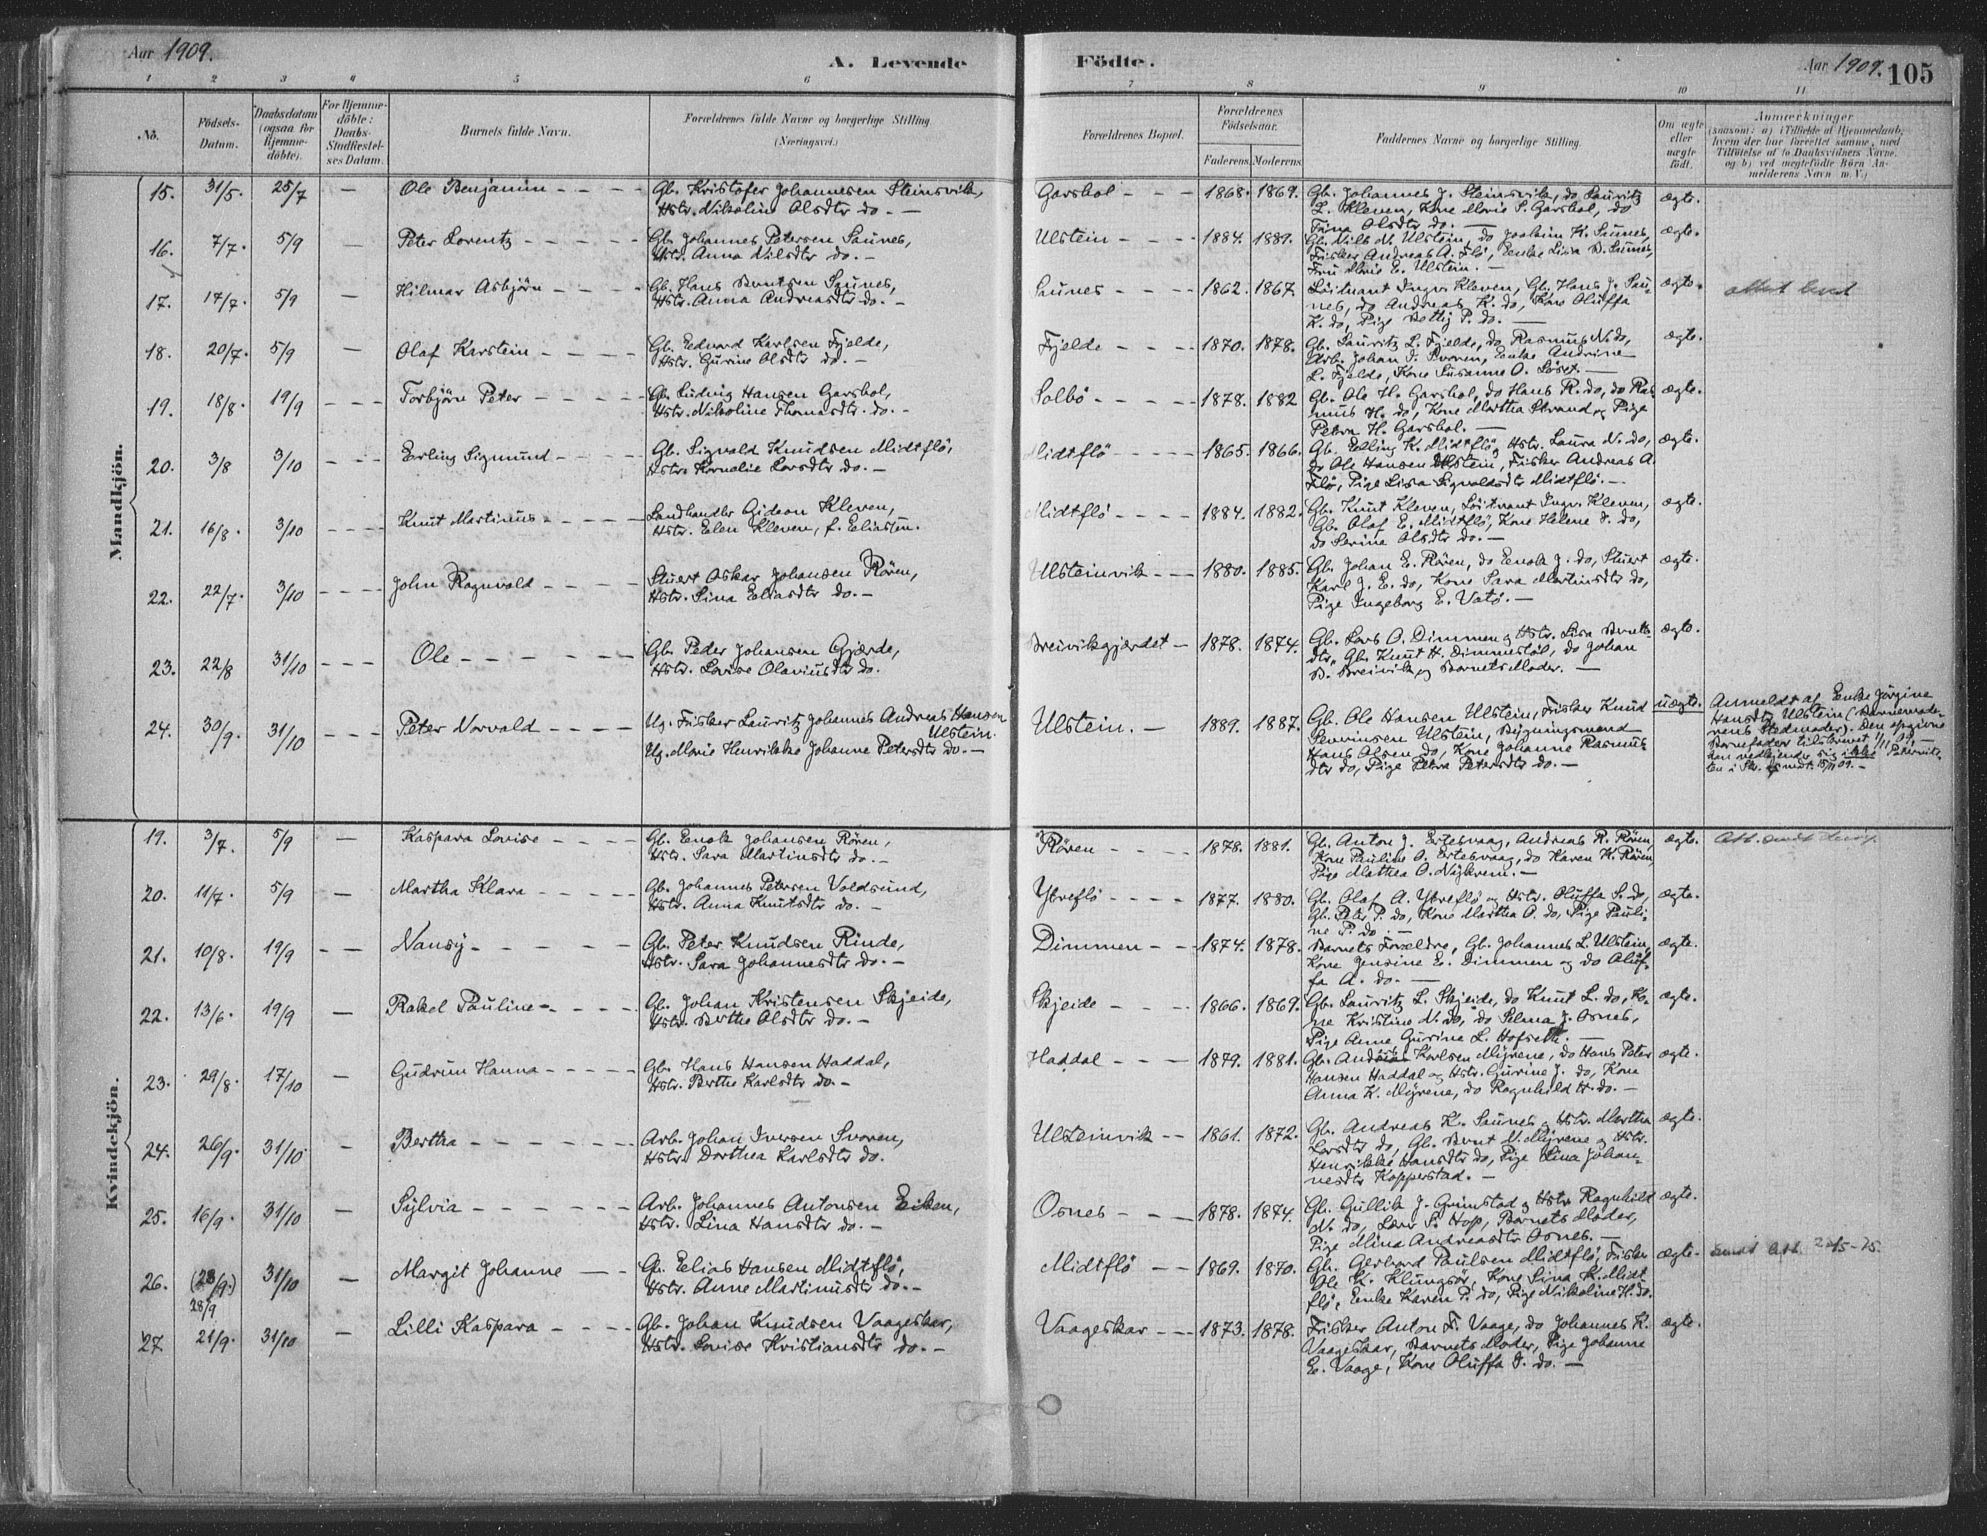 Aar 1909.
A. Levende
Födte.
Aar 1909. 105
1 2 3 4 5 6 7 8 9 10 11
No.
Födsels-Datum.
Daabsdatum (ogsaa for Hjemme-döbte).
For Hjemme-döbte: Daabs-Stadfæstelses Datum.
Barnets fulde Navn.
Forældrenes fulde Navne og borgerlige Stilling. (Næringsvei.)
Forældrenes Bopæl.
Forældrenes Födselsaar.
Faderens. Moderens.
Faddernes Navne og borgerlige Stilling.
Om ægte eller uægte födt.
Anmærkninger
(saasom: a) i Tilfælde af Hjemmedaab, hvem der har forrettet samme, med Tilföielse af to Daabsvidners Navne. og b) ved uægtefödte Börn Anmelderens Navn m. V.)
Mandkjön.
15. 31/5. 25/7 — Ole Benjamin — Gb. Kristofer Johannesen Steinsvik, Hstr. Nikoline Olsdtr do. — Garshol — 1868. 1869. Gb. Johannes J. Steinsvik, do Lauritz
L. Kleven, Kone Marie S. Garshol, do
Trina Olsdtr do. — ægte.
16. 7/7. 5/9 — Peter Lorentz — Gb. Johannes Petersen Saunes, Hstr. Anna Nilsdtr do. — Ulstein — 1884. 1889. Gb. Nils N. Ulstein, do Joakim H. Saunes,
Fisker Andreas A. Flö, Enke Lisa B. Saunes,
Fru Marie E. Ulstein. — ægte.
17. 14/7. 5/9 — Hilmar Asbjörn — Gb. Hans Berntsen Saunes, Hstr. Anna Andreasdtr do. — Saunes — 1862. 1867. Löitnant Ingv. Kleven, Gb. Hans J. Sau-
nes, do Andreas K. do, Kone Oluffa
K. do, Pige Bothy P. do. — ægte.
18. 20/7. 5/9 — Olaf Karstein — Gb. Edvard Karlsen Fjelde, Hstr. Gurine Olsdtr do. — Fjelde — 1870. 1878. Gb. Lauritz L. Fjelde, do Rasmus N. do,
Arb. Johan I. Svoren, Enke Andrine
L. Fjelde, Kone Susanne O. Löset. — ægte.
19. 18/8. 19/9 — Torbjörn Peter — Gb. Ludvig Hansen Garshol, Hstr. Nikoline Thomasdtr. do. — Solbö — 1878. 1882 Gb. Ole H. Garshol, do Hans R. do, do Ras-
mus H. do, Kone Martha Strand og Pige
Petra H. Garshol. — ægte.
20. 3/8 3/10 — Erling Sigmund — Gb. Sigvald Knudsen Midtflö, Hstr. Kornelie Larsdtr do. — Midtflö — 1865. 1866. Gb. Elling K. Midtflö og Hstr. Laura N. do,
do Ole Hansen Ulstein, Fisker Andreas A.
Flö, Pige Lisa Sigvaldsdtr Midtflö. — ægte.
21. 16/8. 3/10 — Knut Martinus — Landhandler Gideon Kleven, Hstr. Elen Kleven, f. Eliassen. Midtflö — 1884. 1882. Gb. Knut Kleven, Löitnant Ingv. Kleven,
Gb. Olaf E. Midtflö, Kone Helene I. do,
do Serine Olsdtr do. — ægte.
22. 22/7. 3/10 — John Ragnvald — Stuert Oskar Johansen Rören, Hstr. Sina Eliasdtr do. — Ulsteinvik — 1880. 1885. Gb. Johan E. Rören, do Enok J. do, Stuert
Karl J. E. do, Kone Sara Martinsdtr do,
Pige Ingeborg E. Vatö. — ægte.
23. 22/8 31/10 — Ole — Gb. Peder Johansen Gjærde, Hstr. Lovise Olaviusdtr do. Breivikgjærdet — 1878. 1874. Gb. Lars O. Dimmen og Hstr. Lisa Bernts
dtr, Gb. Knut H. Dimmestöl, do Johan
B. Breivik og Barnets Moder. — ægte.
24. 30/9. 31/10 — Peter Norvald — Ug. Fisker Lauritz Johannes Andreas Hansen Ulstein. Ug. Marie Henrikke Johanne Petersdtr do. — Ulstein. — 1889. 1887. Gb. Ole Hansen Ulstein, Fisker Knud
Severinsen Ulstein, Bygningsmand
Hans Olsen do, Kone Johanne Rasmus
dtr do, Pige Petra Petersdtr do. — uægte. Anmeldt af Enke Jörgine
Hansdtr Ulstein (Barnemode-
rens Stedmoder). Den opgivne
Barnefader tilskrevet 1/11 09, —
han vedkjender sig ikke Paterniteten i Skr.
Kvindekjön.
19. 3/7. 5/9 — Kaspara Lovise — Gb. Enok Johansen Rören, Hstr. Sara Martinsdtr do. — Rören — 1878. 1881. Gb. Anton J. Ertesvaag, Andreas R. Rören
Kone Pauline O. Ertesvaag, do Karen K. Rören
Pige Mathea O. Nykrem. — ægte.
20. 11/7. 5/9 — Martha Klara — Gb. Johannes Petersen Voldsund, Hstr. Anna Knutsdtr do. — Ytreflö — 1877. 1880. Gb. Olaf A. Ytreflö og Hstr. Oluffa S. do,
Gb. Peter P. do, Kone Martha O. do, Pige Pauli-
ne P. do. — ægte.
21. 10/8. 19/9 — Nansy — Gb. Peter Knudsen Rinde, Hstr. Sara Johannesdtr do. — Dimmen — 1874. 1878. Barnets Forældre, Gb. Johannes L. Ulstein,
Kone Jensine E. Dimmen og do Oluf-
fa A. do. — ægte.
22. 13/6. 19/9 — Rakel Pauline — Gb. Johan Kristensen Skjeide, Hstr. Berthe Olsdtr do. — Skjeide — 1866. 1869. Gb. Lauritz L. Skjeide, do Knut L. do, Ko-
ne Kristine N. do, do Selma J. Osnes,
Pige Anne Gurine L. Hofseth. — ægte.
23. 29/8. 17/10 — Gudrun Hanna — Gb. Hans Hansen Haddal, Hstr. Berthe Karlsdtr do. — Haddal — 1879. 1881. Gb. Andreas Karlsen Myrene, do Hans Peter
Hansen Haddal og Hstr. Gurine J. do, Kone
Anna K. Myrene, do Ragnhild H. do. — ægte.
24. 26/9. 31/10 — Bertha — Arb. Johan Iversen Svoren, Hstr. Dorthea Karlsdtr do. Ulsteinvik — 1861. 1872. Gb. Andreas K. Saunes og Hstr. Martha
Larsdtr do, Gb. Bernt N. Myrene og Hstr.
Henrikke Hansdtr do, Pige Lina Johan-
nesdtr Kopperstad. — ægte.
25. 16/9. 31/10 — Sylvia — Arb. Johannes Antonsen Eiken, Hstr. Lina Hansdtr do. — Osnes — 1878. 1874. Gb. Gullik J. Grimstad og Hstr. Ragnhild
N. do, Lars S. Hop, Barnets Moder,
Pige Mina Andreasdtr Osnes. — ægte.
26. (28/9.) 28/9 31/10 — Margit Johanne — Gb. Elias Hansen Midtflö, Hstr. Anne Martinusdtr do. — Midtflö — 1869. 1870. Gb. Gerhard Paulsen Midtflö, Fisker
Ole K. Klungsör, Kone Sina K. Midt
flö, Enke Karen P. do, Pige Nikoline H. do. ægte.
27 21/9. 31/10 — Lilli Kaspara — Gb. Johan Knudsen Vaageskar, Hstr. Lovise Kristiansdtr do. — Vaageskar — 1873. 1878. Fisker Anton F. Vaage, do Johannes K.
Vaageskar, Barnets Moder, Pige Johanne
E. Vaage, Kone Oluffa I. do. — ægte.